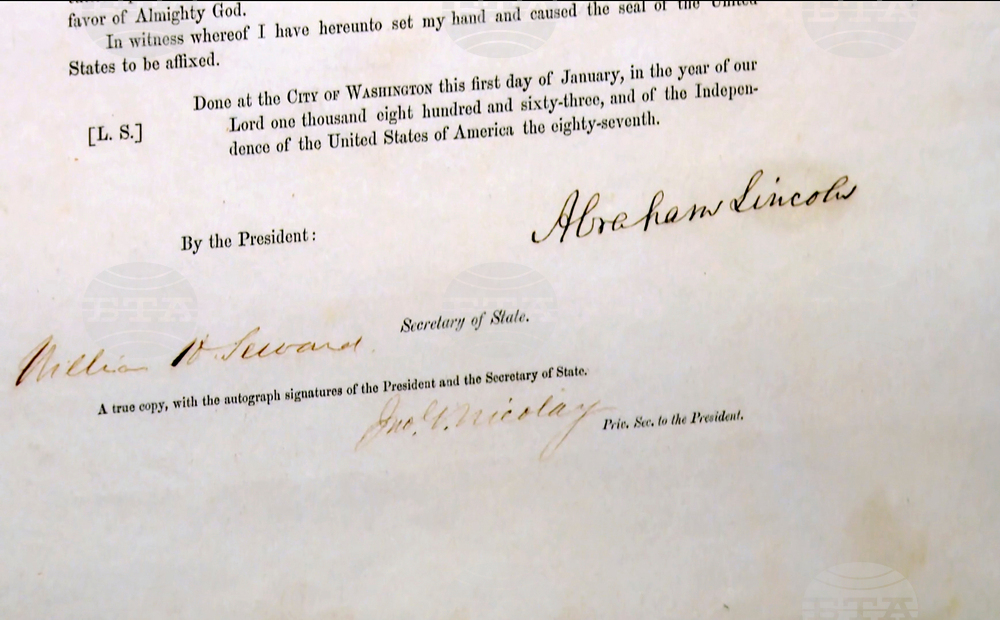 favor of Almighty God.
In witness whereof I have hereunto set my hand and caused the seal of the United
States to be affixed.
Done at the CITY OF WASHINGTON this first day of January, in the year of our
Lord one thousand eight hundred and sixty-three, and of the Indepen-
[L. S.]
dence of the United States of America the eighty-seventh.
Abraham Lincoln
By the President:
Secretary of State.
William H. Seward
A true copy, with the autograph signatures of the President and the Secretary of State.
Jno. G. Nicolay
Priv. Sec. to the President.
БТА
БТА
БТА
БТА